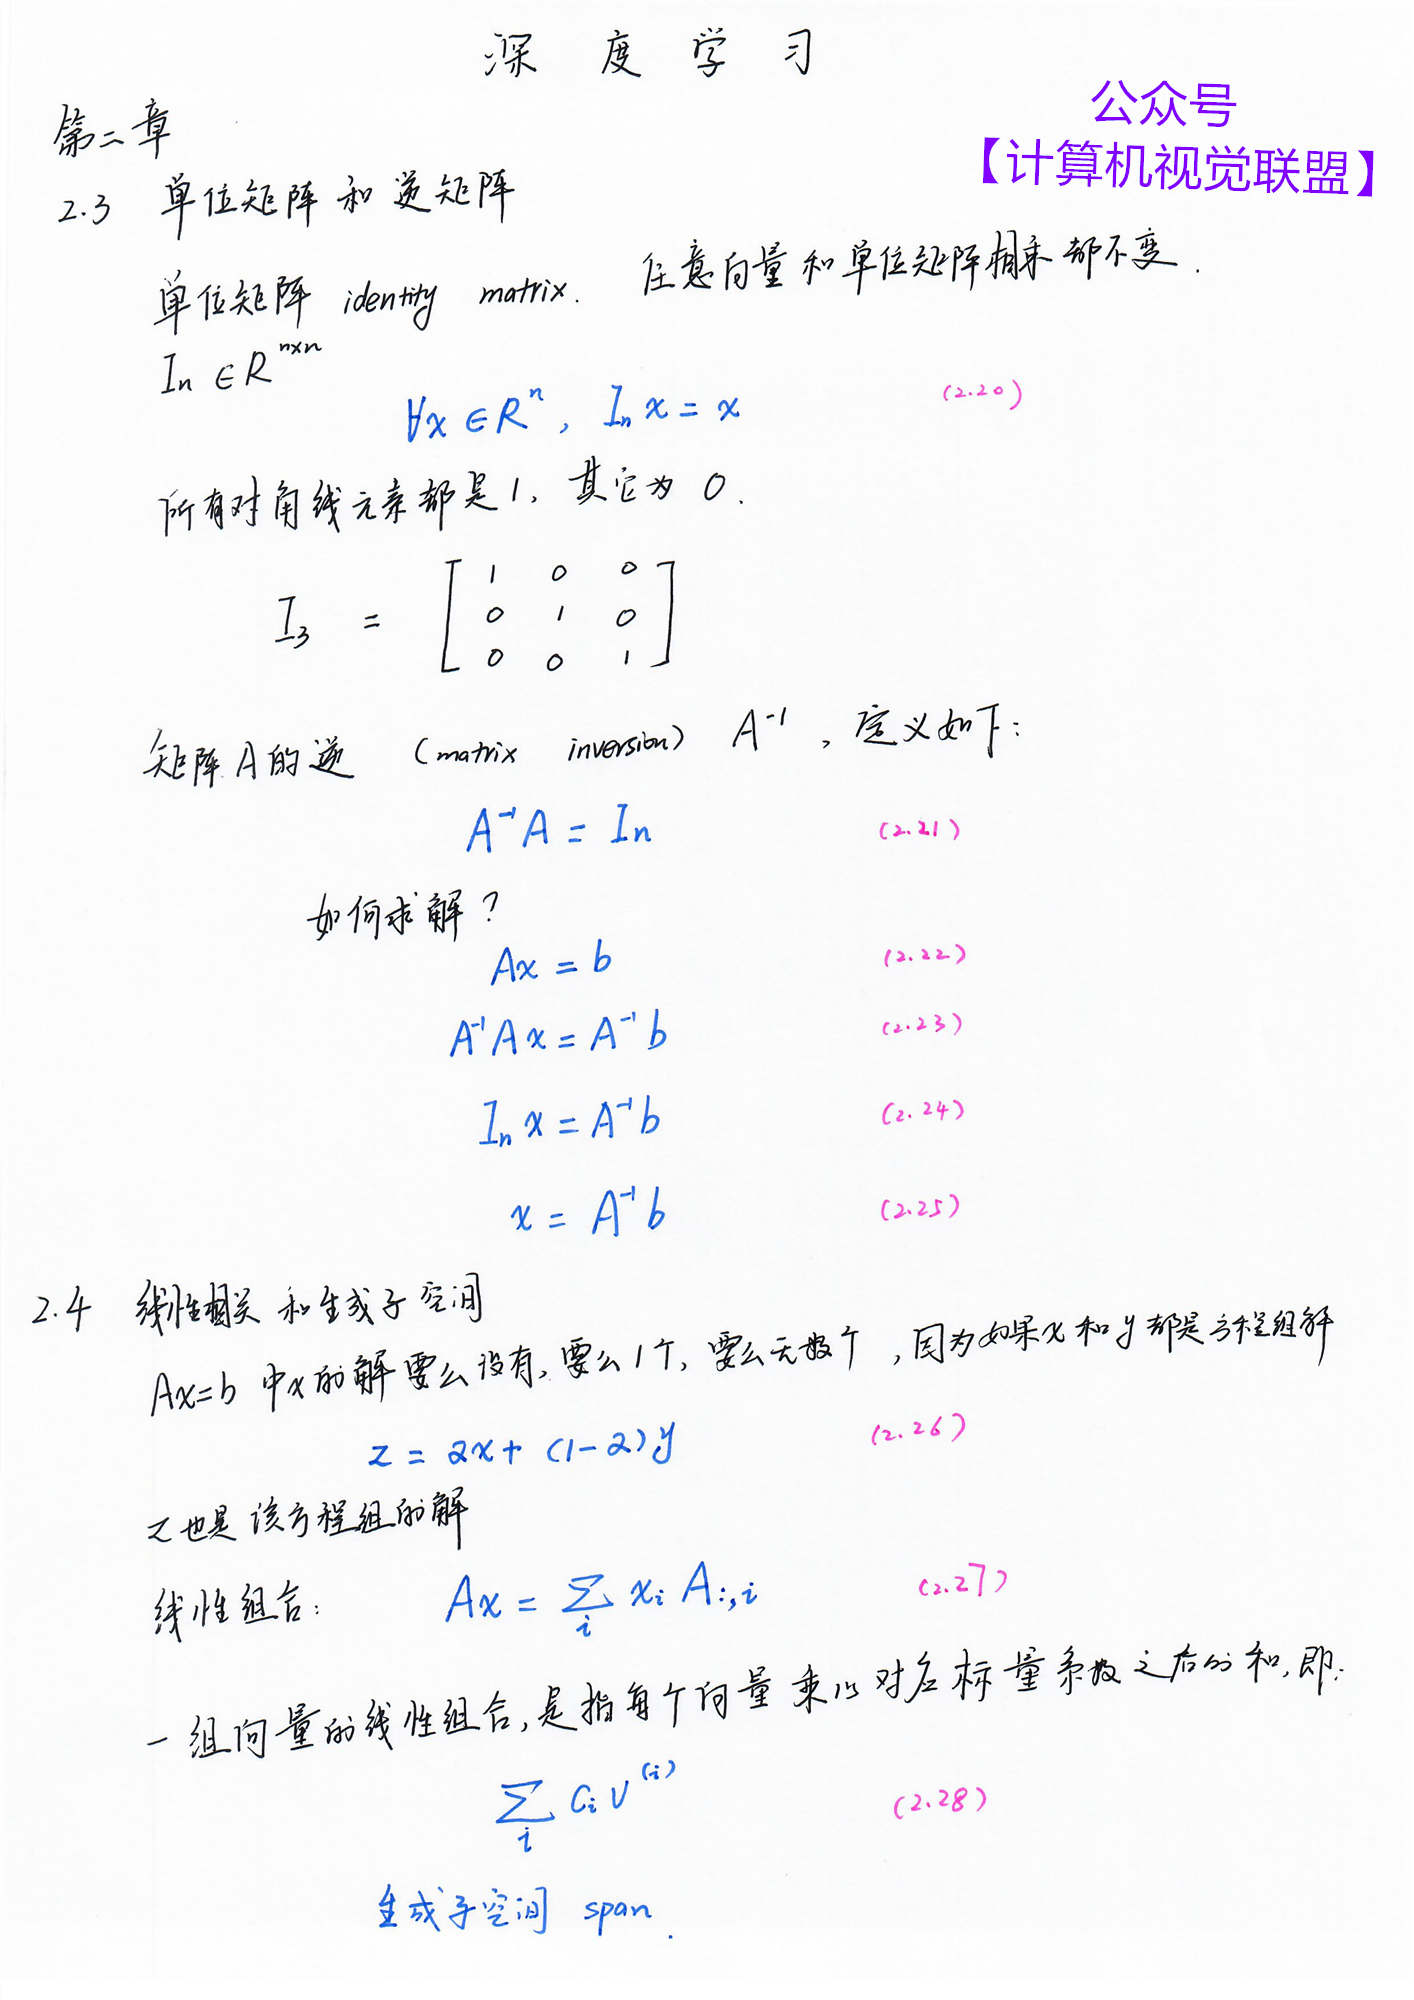 深度学习
公众号
【计算机视觉联盟】
第二章
2.3 单位矩阵和逆矩阵
单位矩阵 identity matrix. 任意向量和单位矩阵相乘都不变.
Iₙ ∈ Rⁿˣⁿ
∀x ∈ Rⁿ, Iₙ x = x (2.20)
所有对角线元素都是1, 其它为 0.
I₃ = [ 1 0 0
0 1 0
0 0 1 ]
矩阵A的逆 (matrix inversion) A⁻¹, 定义如下:
A⁻¹A = In (2.21)
如何求解?
Ax = b (2.22)
A⁻¹Ax = A⁻¹b (2.23)
Iₙ x = A⁻¹b (2.24)
x = A⁻¹b (2.25)
2.4 线性相关和生成子空间
Ax=b 中x的解要么没有, 要么1个, 要么无数个, 因为如果x和y都是方程组解
z = 2x + (1-2)y (2.26)
z也是该方程组的解
线性组合: Ax = ∑ᵢ xᵢ A:,i (2.27)
一组向量的线性组合, 是指每个向量乘以对应标量系数之后的和, 即:
∑ᵢ Cᵢ V⁽ⁱ⁾ (2.28)
生成子空间 span.